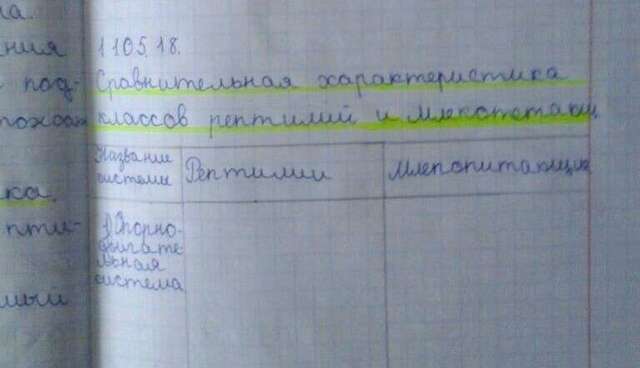 ла.
ния
под-
похож
ка.
пти-
мыи
1105.18.
Сравнительная характеристика
классов рептилий и Млекопетающ
Название
системы
Рептилии
Млепопитающие
1) Опорно-
двигате
льная
система